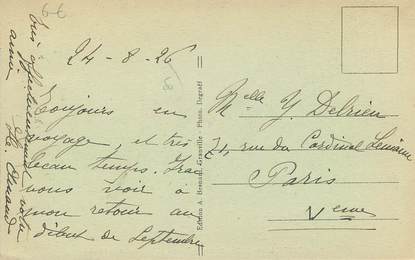 24-8-26
Toujours en
voyage, et très
beau temps. Irai
vous voir à
mon retour au
début de Septembre
Très affectueusement votre
amie
Edition A. Grenville - Photo. Degraëf
Melle Y. Delrieu
74, rue du Cardinal Lemoine
Paris
Veme